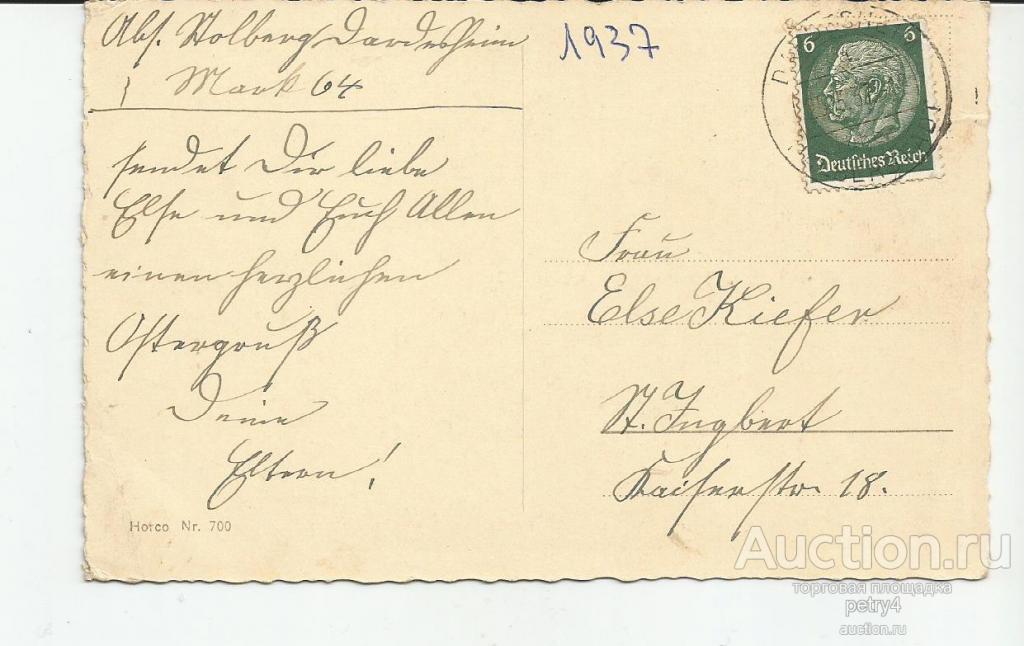 Abs. Stolberg Dardesheim
Mark 64
sendet Dir liebe
Else und Euch Allen
einen herzlichen
Ostergruß
Deine
Eltern!
Hotco Nr. 700
1937
6 6
Deutsches Reich
Frau
Else Kiefer
St. Ingbert
Kaiserstr. 18.
Auction.ru
торговая площадка
petry4
auction.ru